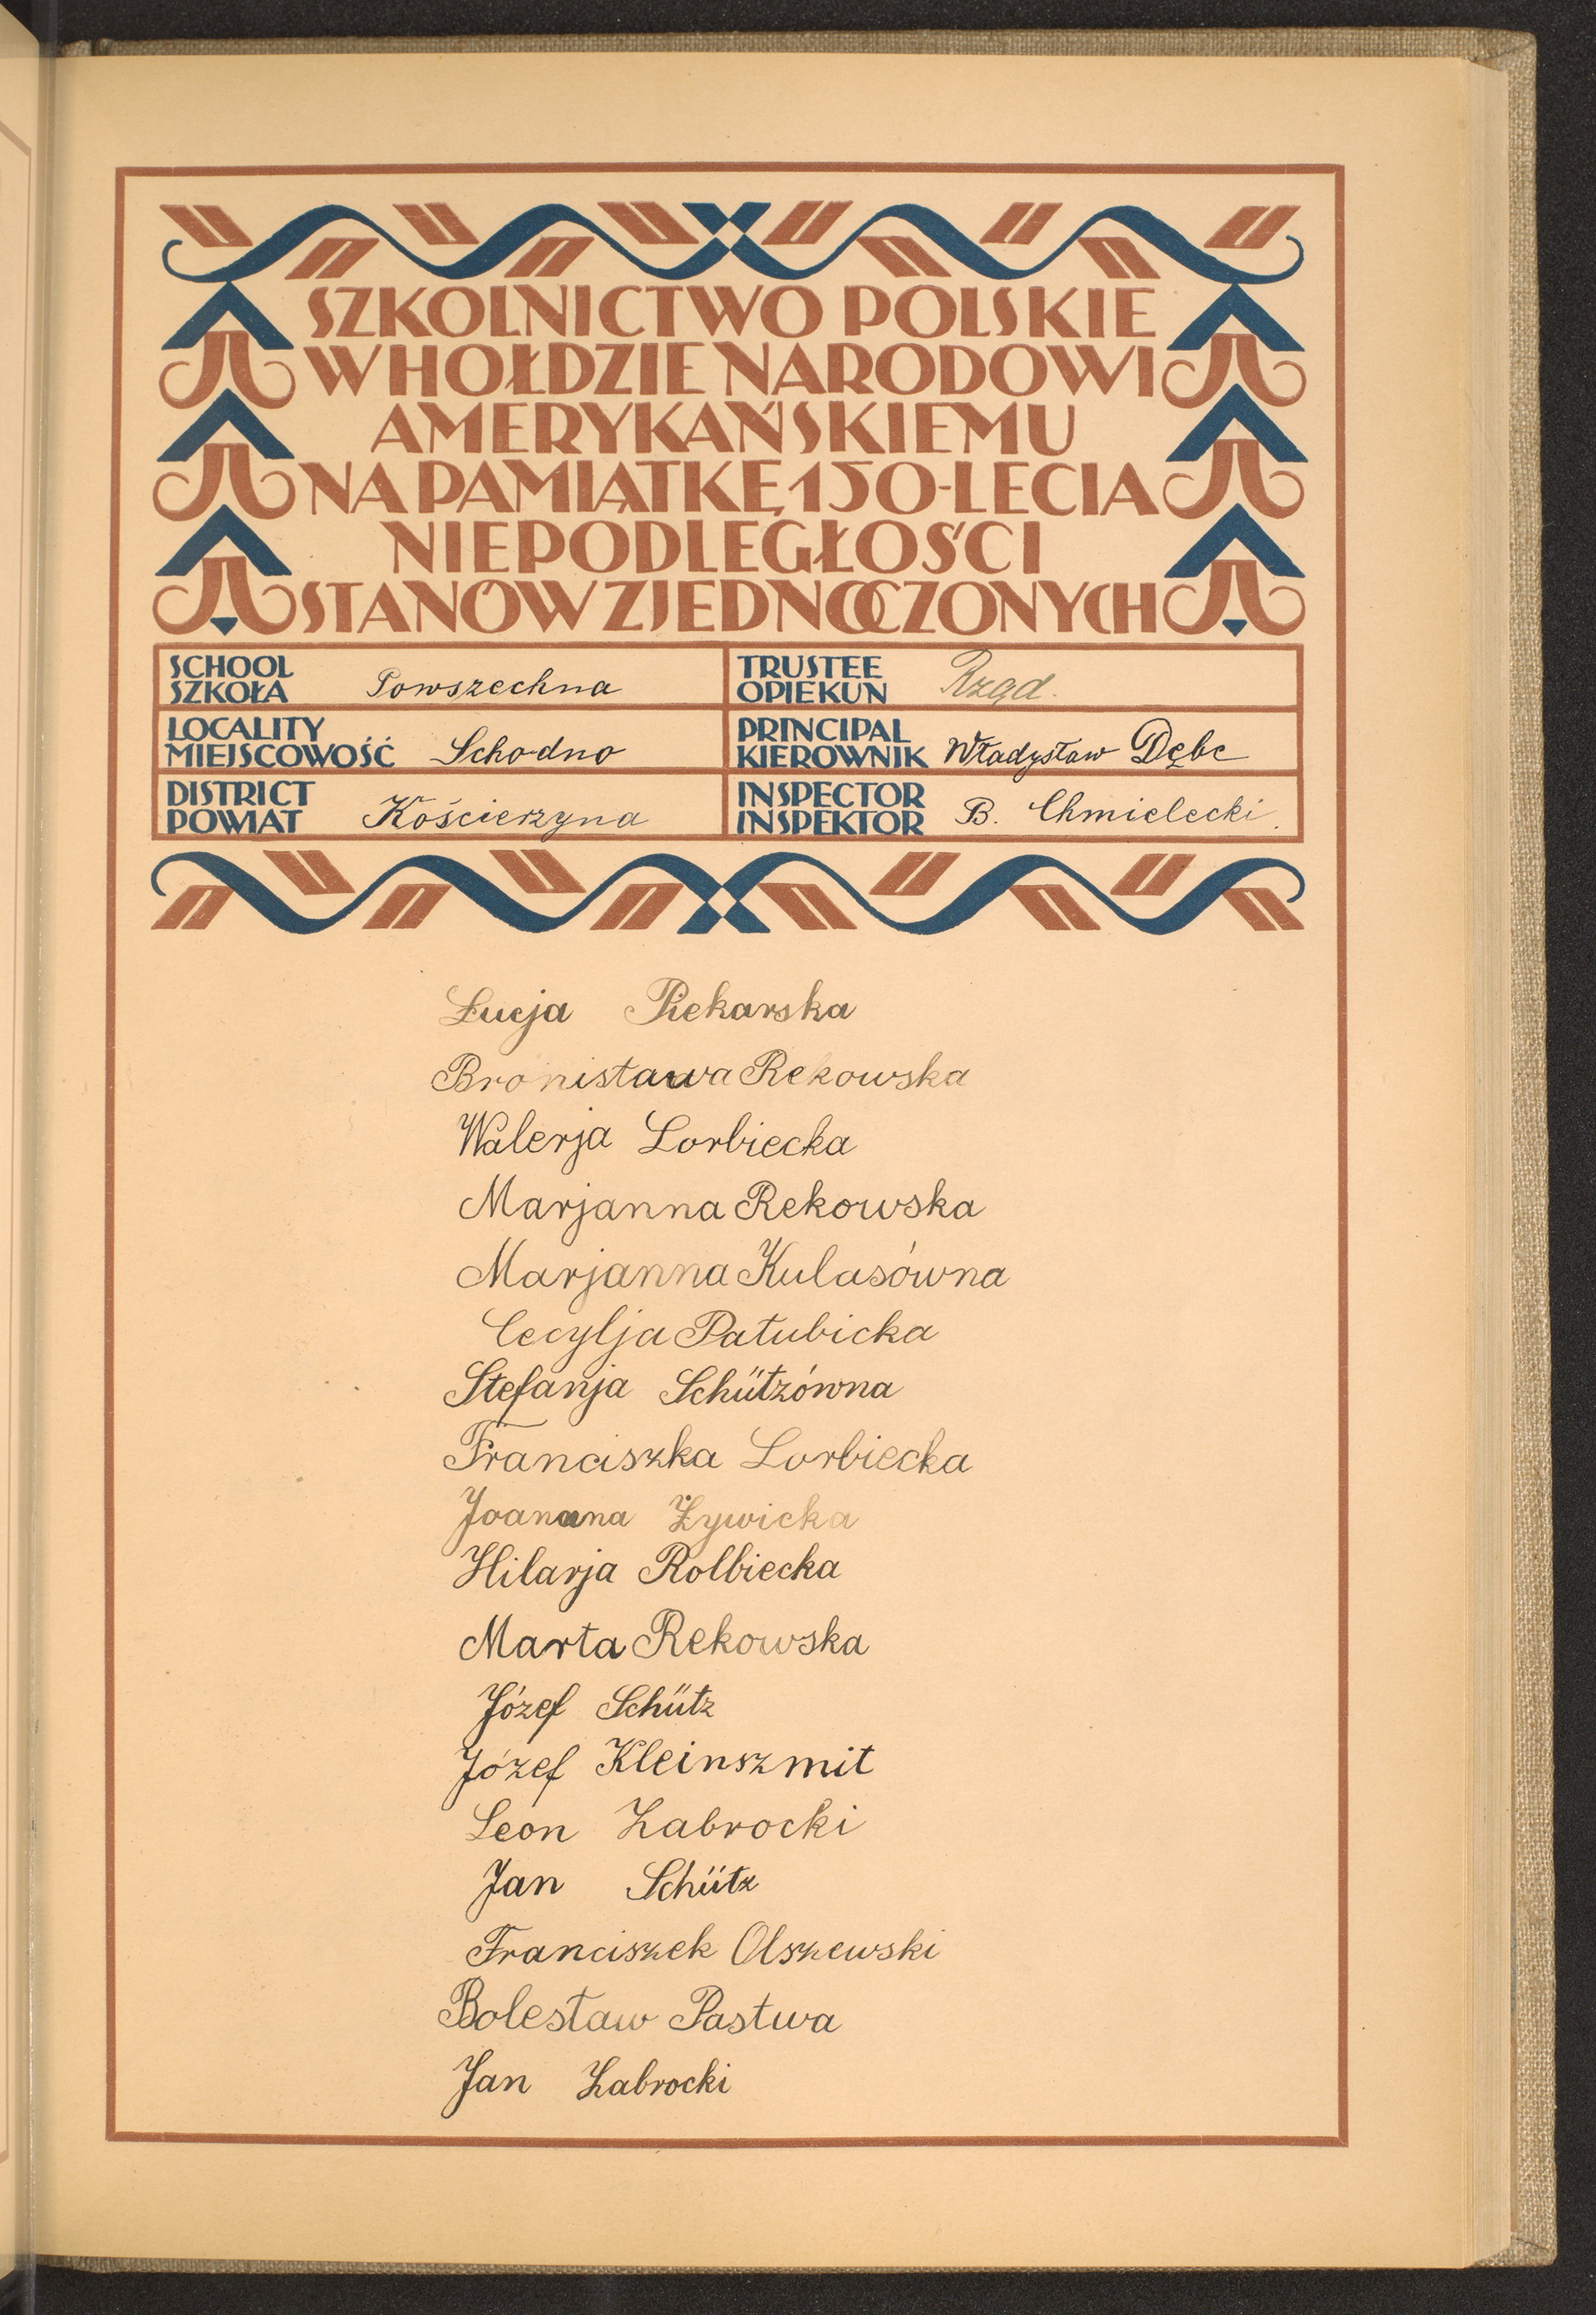 SZKOLNICTWO POLSKIE
W HOŁDZIE NARODOWI
AMERYKAŃSKIEMU
NA PAMIĄTKĘ 150-LECIA
NIEPODLEGŁOŚCI
STANÓW ZJEDNOCZONYCH
SCHOOL
SZKOŁA Powszechna
TRUSTEE
OPIEKUN Rząd.
LOCALITY
MIEJSCOWOŚĆ Schodno
PRINCIPAL
KIEROWNIK Władysław Dębc
DISTRICT
POWIAT Kościerzyna
INSPECTOR
INSPEKTOR B. Chmielecki.
Łucja Piekarska
Bronisława Rekowska
Walerja Lorbiecka
Marjanna Rekowska
Marjanna Kulasówna
Cecylja Pałubicka
Stefanja Schützówna
Franciszka Lorbiecka
Joanana Żywicka
Hilarja Rolbiecka
Marta Rekowska
Józef Schütz
Józef Kleinszmit
Leon Zabrocki
Jan Schütz
Franciszek Olszewski
Bolesław Pastwa
Jan Zabrocki